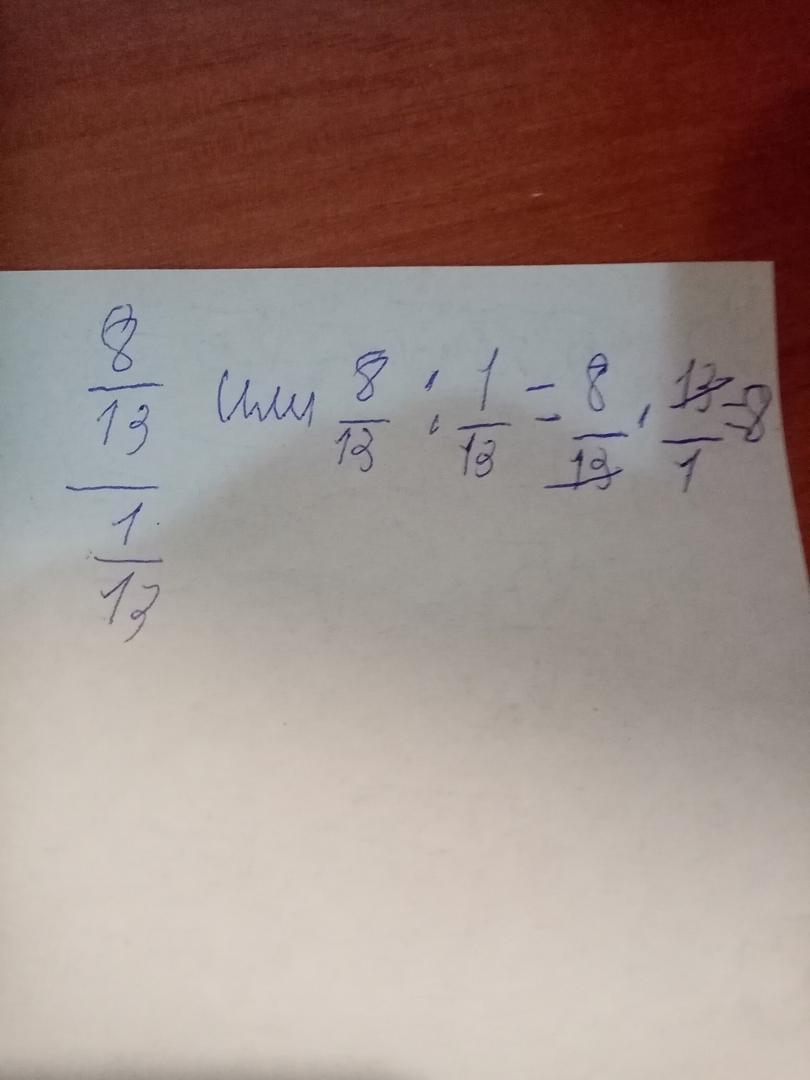 8/13 / 1/13 или 8/13 : 1/13 = 8/13 · 13/1 = 8